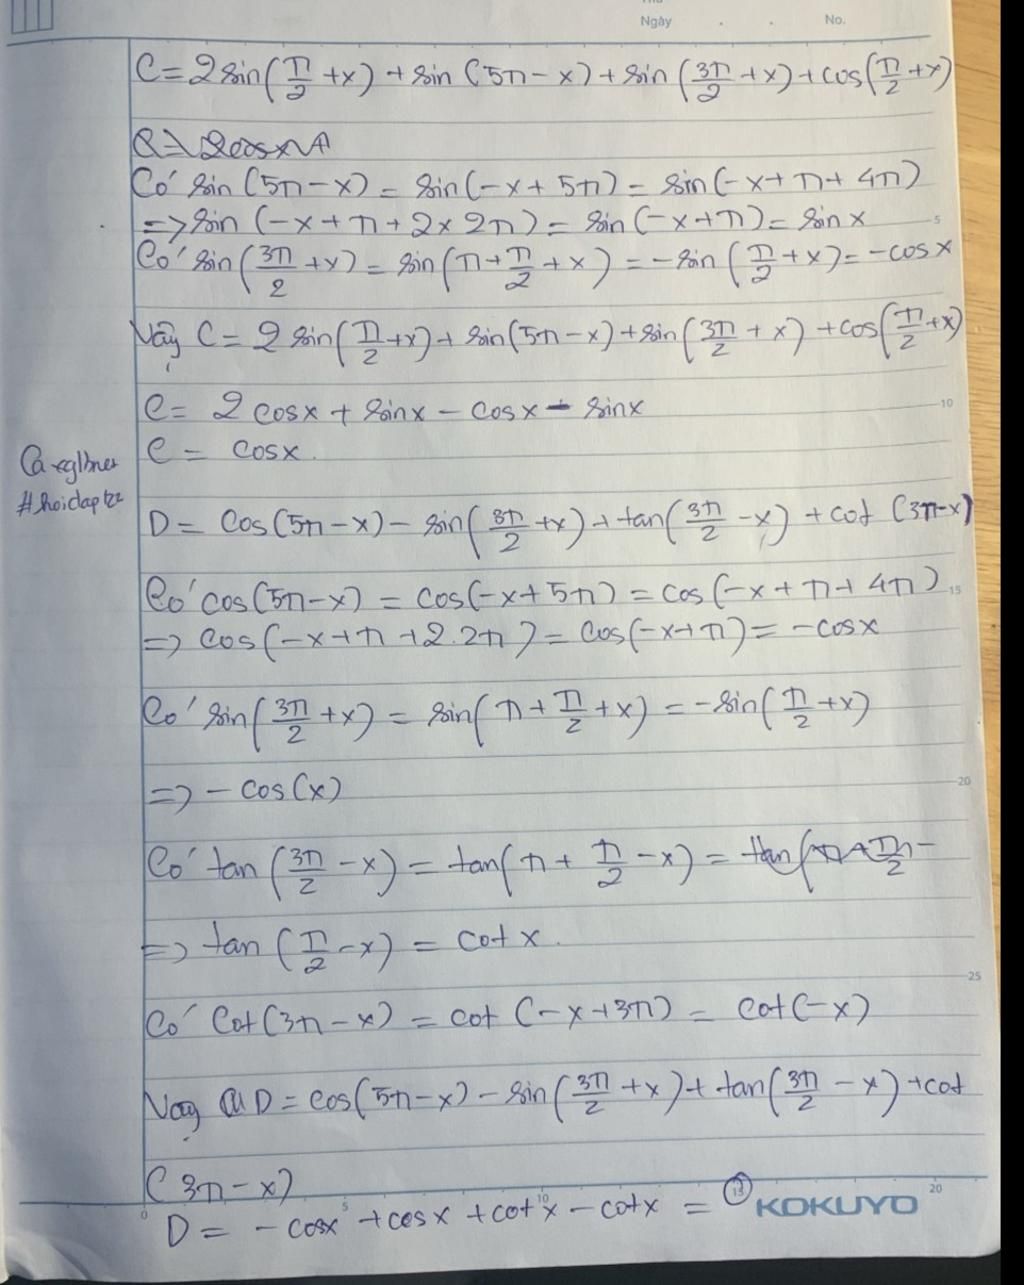 Ngày . . No.
C = 2 sin(π/2 + x) + sin (5π - x) + sin (3π/2 + x) + cos(π/2 + x)
Có sin (5π - x) = sin(-x + 5π) = sin(-x + π + 4π)
=> sin (-x + π + 2 x 2π) = sin(-x + π) = sin x
5
Có sin(3π/2 + x) = sin(π + π/2 + x) = - sin (π/2 + x) = - cos x
Vậy C = 2 sin(π/2 + x) + sin(5π - x) + sin(3π/2 + x) + cos(π/2 + x)
C = 2 cosx + sinx - cosx - sinx
10
C = cosx.
#hoidap
D = cos(5π - x) - sin(3π/2 + x) + tan(3π/2 - x) + cot (3π - x)
Có cos(5π - x) = cos(-x + 5π) = cos(-x + π + 4π)
15
=> cos(-x + π + 2.2π) = cos(-x + π) = - cosx
Có sin(3π/2 + x) = sin(π + π/2 + x) = - sin(π/2 + x)
=> - cos(x)
20
Có tan (3π/2 - x) = tan(π + π/2 - x) =
=> tan (π/2 - x) = cot x.
25
Có Cot(3π - x) = cot (-x + 3π) = cot(-x)
Vậy D = cos(5π - x) - sin(3π/2 + x) + tan(3π/2 - x) + cot
(3π - x)
D = - cosx + cosx + cotx - cotx = 0
0 5 10 15 KOKUYO 20